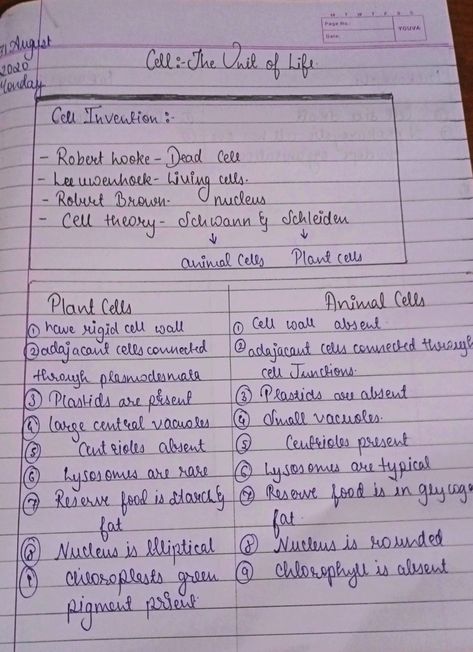 M T W T F S S
Page No.:
Date:
YOUVA
31 August
2020
Monday
Cell:- The Unit of Life.
Cell Invention:-
- Robert Hooke - Dead Cell
- Leeuwenhoek - Living cells.
- Robert Brown - nucleus
- Cell theory - Schwann & Schleiden
↓ ↓
animal cells Plant cells
Plant Cells
① have rigid cell wall
② adajacant cells connected
through plasmodesmata
③ Plastids are present
④ large central vacuoles
⑤ Centrioles absent
⑥ Lysosomes are rare
⑦ Reserve food is starch &
fat
⑧ Nucleus is Elliptical
⑨ chloroplasts green
pigment present.
Animal Cells
① Cell wall absent
② adajacant cells connected through
cell Junctions.
③ Plastids are absent
④ Small vacuoles.
⑤ Centrioles present
⑥ Lysosomes are typical
⑦ Reserve food is in
fat.
⑧ Nucleus is rounded
⑨ Chlorophyll is absent